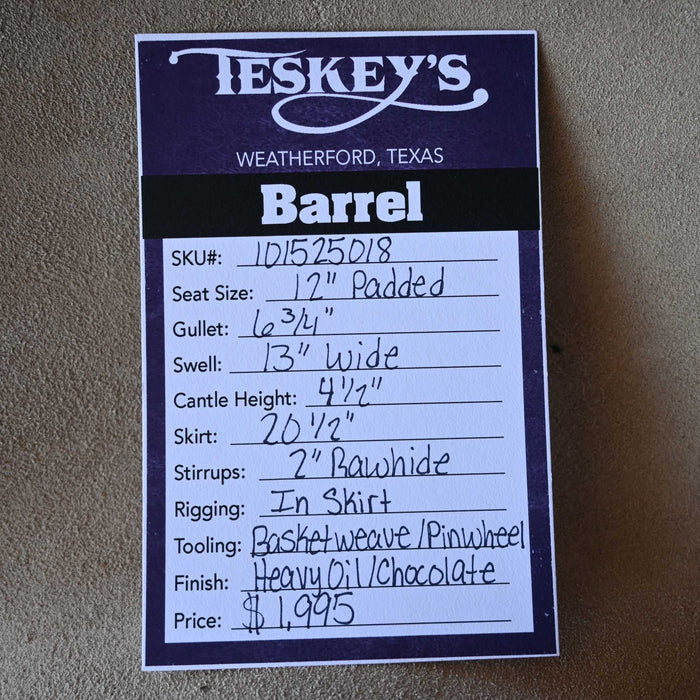 TESKEY'S
WEATHERFORD, TEXAS
Barrel
SKU#: 101525018
Seat Size: 12" Padded
Gullet: 6 3/4"
Swell: 13" Wide
Cantle Height: 4 1/2"
Skirt: 20 1/2"
Stirrups: 2" Rawhide
Rigging: In Skirt
Tooling: Basketweave/Pinwheel
Finish: Heavy Oil/Chocolate
Price: $1,995